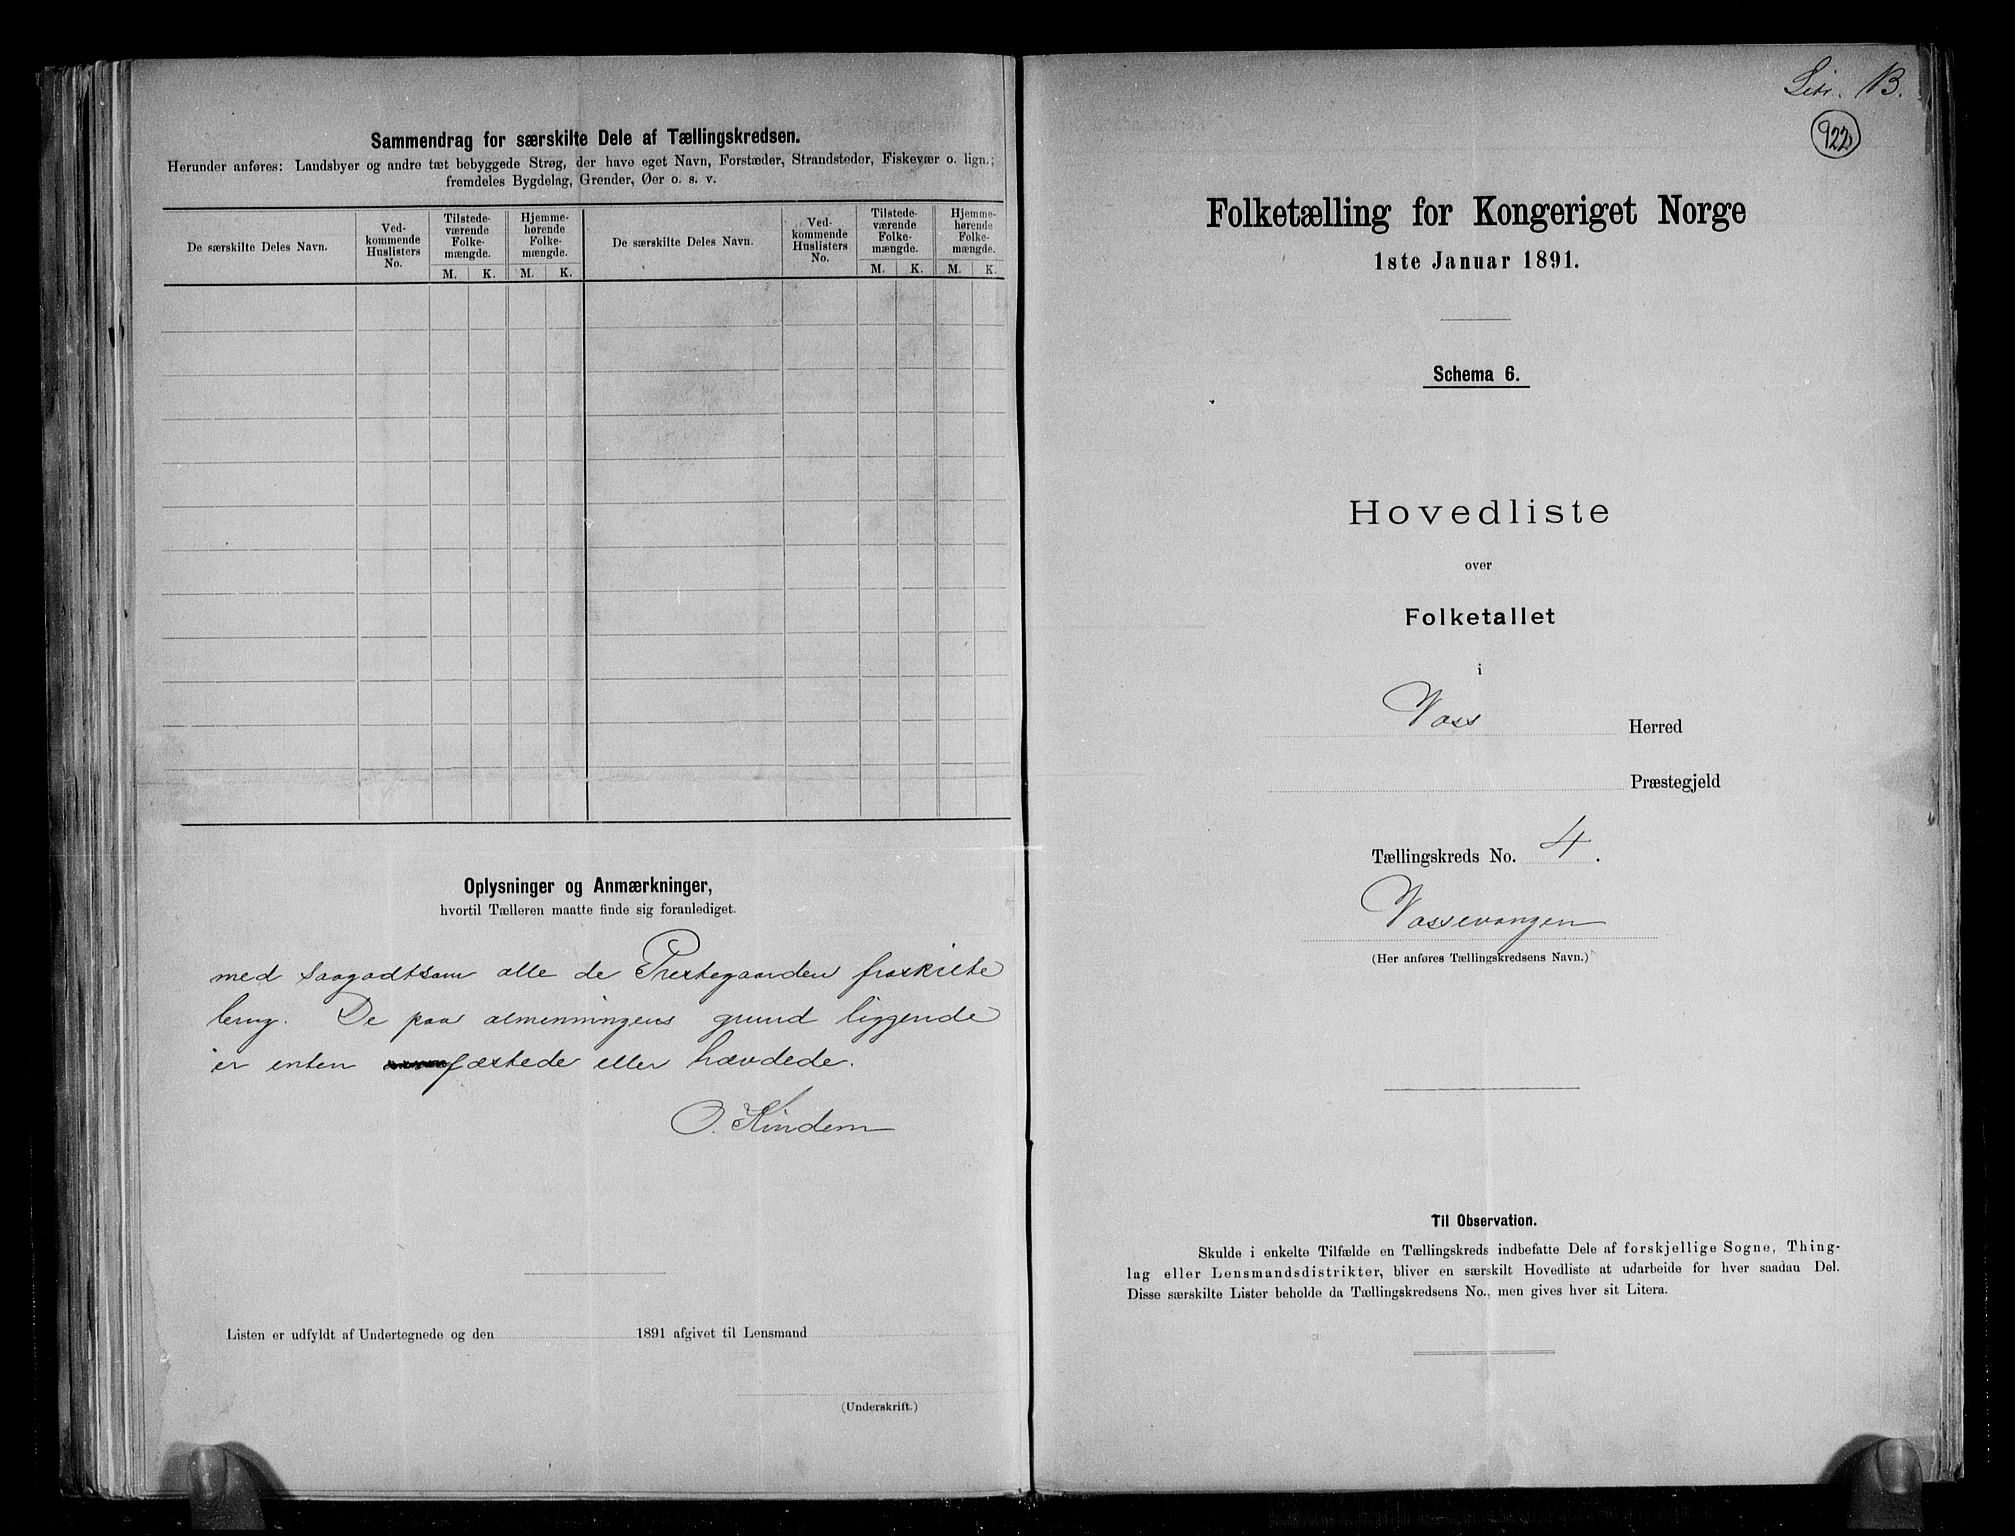 Sammendrag for særskilte Dele af Tællingskredsen.
Herunder anføres: Landsbyer og andre tæt bebyggede Strøg, der have eget Navn, Forstæder, Strandsteder, Fiskevær o. lign.;
fremdeles Bygdelag, Grender, Øer o. s. v.
De særskilte Deles Navn.
Ved-
kommende
Huslisters
No.
Tilstede-
værende
Folke-
mængde.
M. K.
Hjemme-
hørende
Folke-
mængde.
M. K.
De særskilte Deles Navn.
Ved-
kommende
Huslisters
No.
Tilstede-
værende
Folke-
mængde.
M. K.
Hjemme-
hørende
Folke-
mængde.
M. K.
Oplysninger og Anmærkninger,
hvortil Tælleren maatte finde sig foranlediget.
med saagodtsom alle de Prestegaarden fraskilte
brug. De paa almenningens grund liggende
er enten fæstede eller hævdede.
O. Kindem
Listen er udfyldt af Undertegnede og den 1891 afgivet til Lensmand
(Underskrift.)
Litr. B.
922
Folketælling for Kongeriget Norge
1ste Januar 1891.
Schema 6.
Hovedliste
over
Folketallet
i
Voss Herred
Præstegjeld
Tællingskreds No. 4.
Vossevangen
(Her anføres Tællingskredsens Navn.)
Til Observation.
Skulde i enkelte Tilfælde en Tællingskreds indbefatte Dele af forskjellige Sogne, Thing-
lag eller Lensmandsdistrikter, bliver en særskilt Hovedliste at udarbeide for hver saadan Del.
Disse særskilte Lister beholde da Tællingskredsens No., men gives hver sit Litera.